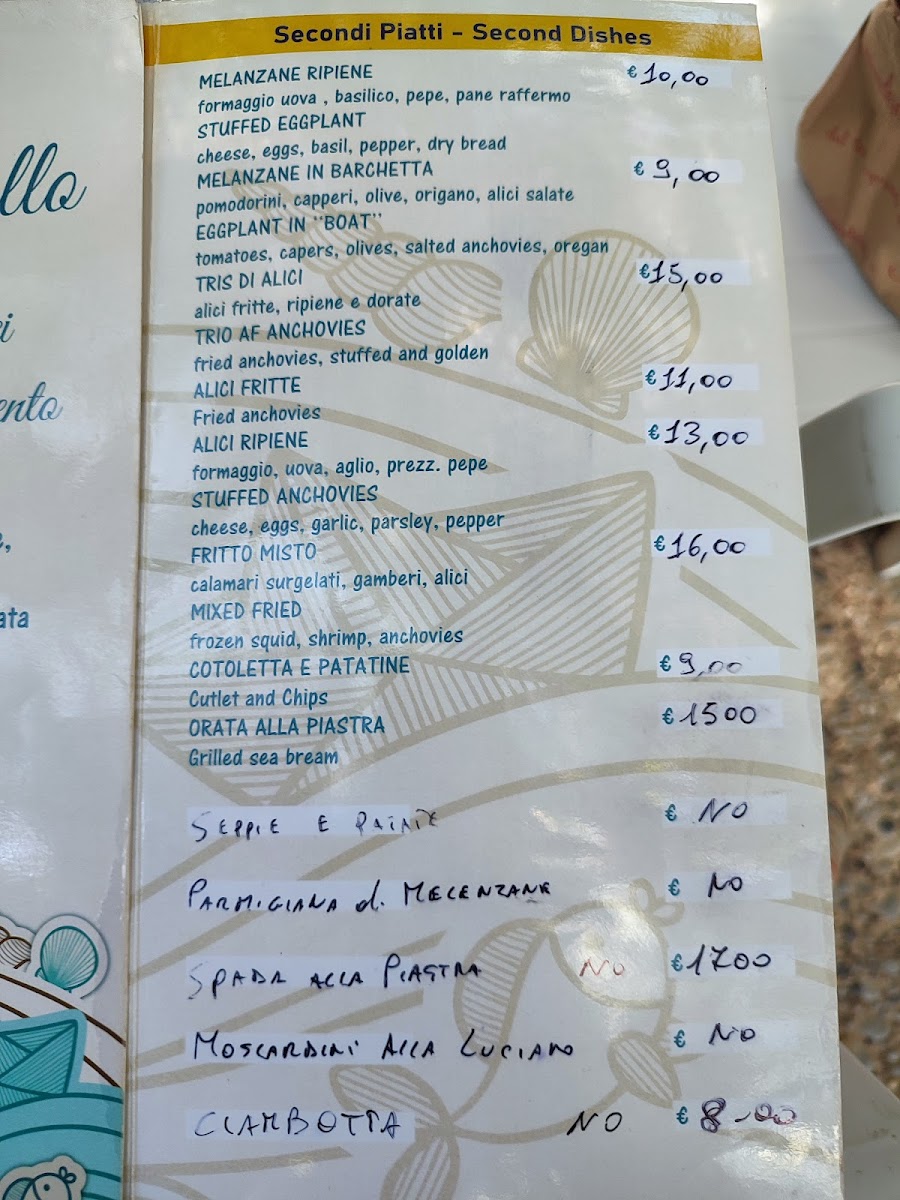 llo
ci
ento
e,
ata
Secondi Piatti - Second Dishes
MELANZANE RIPIENE € 10,00
formaggio uova , basilico, pepe, pane raffermo
STUFFED EGGPLANT
cheese, eggs, basil, pepper, dry bread
MELANZANE IN BARCHETTA € 9,00
pomodorini, capperi, olive, origano, alici salate
EGGPLANT IN "BOAT"
tomatoes, capers, olives, salted anchovies, oregan
TRIS DI ALICI €15,00
alici fritte, ripiene e dorate
TRIO AF ANCHOVIES
fried anchovies, stuffed and golden
ALICI FRITTE €11,00
Fried anchovies
ALICI RIPIENE €13,00
formaggio, uova, aglio, prezz. pepe
STUFFED ANCHOVIES
cheese, eggs, garlic, parsley, pepper
FRITTO MISTO €16,00
calamari surgelati, gamberi, alici
MIXED FRIED
frozen squid, shrimp, anchovies
COTOLETTA E PATATINE € 9,00
Cutlet and Chips
ORATA ALLA PIASTRA € 1500
Grilled sea bream
SEPPIE E € NO
PARMIGIANA di MELENZANE € NO
SPADA ALLA PIASTRA NO €1700
MOSCARDINI ALLA LUCIANO € NO
CIAMBOTTA NO € 8-00